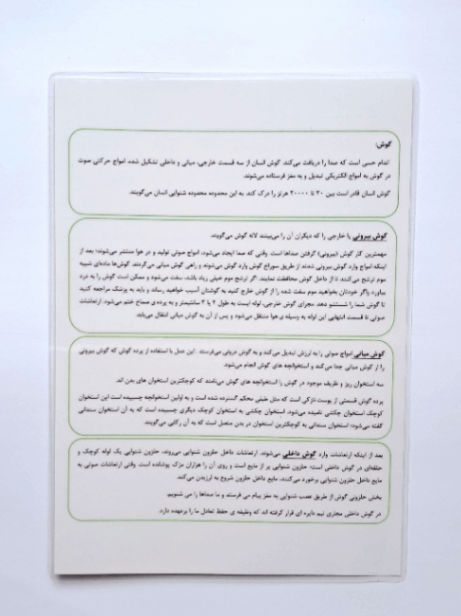 گوش:
اندام حسی است که صدا را دریافت می‌کند. گوش انسان از سه قسمت خارجی، میانی و داخلی تشکیل شده. امواج حرکتی صوت
در گوش به امواج الکتریکی تبدیل و به مغز فرستاده می‌شوند.
گوش انسان قادر است بین ۲۰ تا ۲۰۰۰۰ هرتز را درک کند. به این محدوده محدوده شنوایی انسان می‌گویند.
گوش بیرونی یا خارجی را که دیگران آن را می‌بینند لاله گوش می‌گویند.
مهمترین کار گوش (بیرونی) گرفتن صداها است. وقتی که صدا ایجاد می‌شود، امواج صوتی تولید و در هوا منتشر می‌شوند؛ بعد از
اینکه امواج وارد گوش بیرونی شدند از طریق سوراخ گوش وارد گوش می‌شوند و راهی گوش میانی می‌گردند. گوش‌ها ماده‌ای شبیه
موم ترشح می‌کنند تا از داخل گوش محافظت نمایند. اگر ترشح موم خیلی زیاد باشد، سفت می‌شود و ممکن است گوش را به درد
بیاورد واگر خودتان بخواهید موم سفت شده را از گوش خارج کنید به گوشتان آسیب خواهید رساند و باید به پزشک مراجعه کنید
تا گوش شما را شستشو دهد. مجرای گوش خارجی، لوله ایست به طول ۲ یا ۳ سانتیمتر و به پرده ی صماخ ختم می‌شود. ارتعاشات
صوتی تا قسمت انتهایی این لوله به وسیله ی هوا منتقل می‌شود و پس از آن به گوش میانی انتقال می‌یابد.
گوش میانی امواج صوتی را به لرزش تبدیل می‌کند و به گوش درونی می‌فرستد. این عمل با استفاده از پرده گوش که گوش بیرونی
را از گوش میانی جدا می‌کند و استخوانچه های گوش انجام می‌شود.
سه استخوان ریز و ظریف موجود در گوش را استخوانچه های گوش می‌نامند که کوچکترین استخوان های بدن اند.
پرده گوش قسمتی از پوست نازکی است که مثل طبلی محکم گسترده شده است و به اولین استخوانچه چسبیده است این استخوان
کوچک استخوان چکشی نامیده می‌شود. استخوان چکشی به استخوان کوچک دیگری چسبیده است که به آن استخوان سندانی
گفته می‌شود؛ استخوان سندانی به کوچکترین استخوان در بدن متصل است که به آن رکابی می‌گویند.
بعد از اینکه ارتعاشات وارد گوش داخلی می‌شوند. ارتعاشات داخل حلزون شنوایی می‌روند، حلزون شنوایی یک لوله کوچک و
حلقه‌ای در گوش داخلی است؛ حلزون شنوایی پر از مایع است و روی آن را هزاران مژک پوشانده است. وقتی ارتعاشات صوتی به
مایع داخل حلزون شنوایی برخورد می‌کنند، مایع داخل حلزون شروع به لرزیدن می‌کند.
بخش حلزونی گوش از طریق عصب شنوایی به مغز پیام می فرستد و ما صداها را می شنویم.
در گوش داخلی مجاری نیم دایره ای قرار گرفته اند که وظیفه ی حفظ تعادل ما را برعهده دارد.